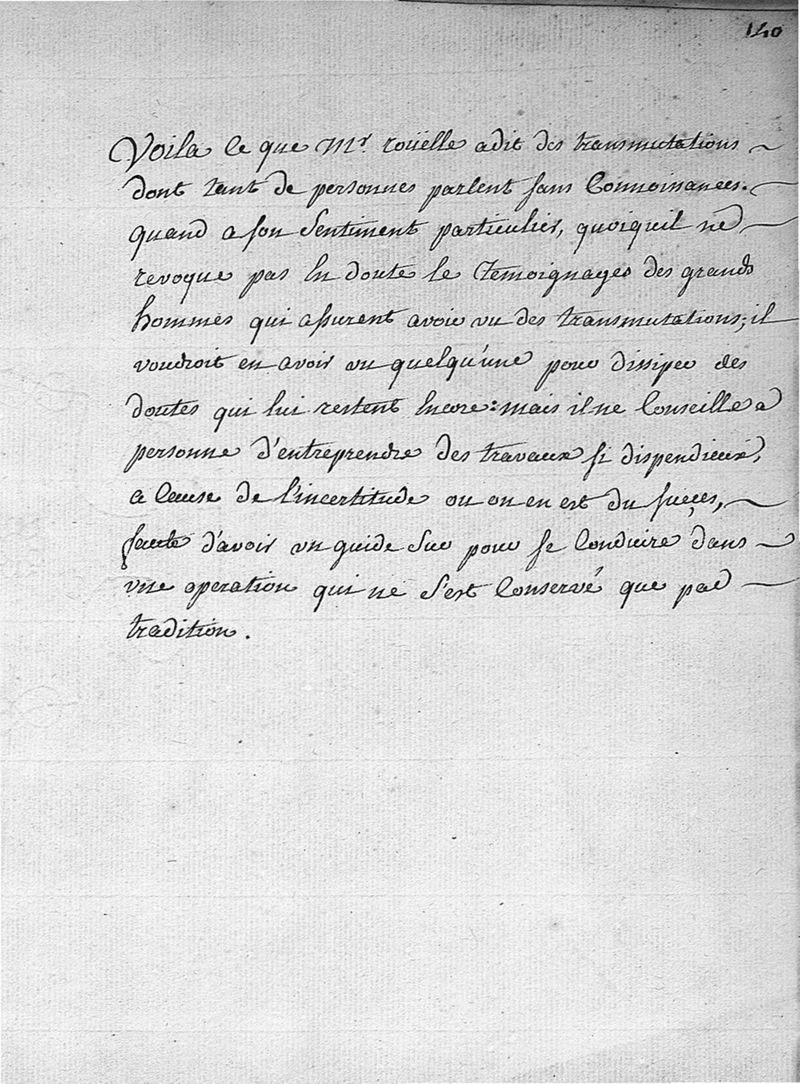 140
Voila ce que Mr. roüelle a dit des transmutations
dont tant de personnes parlent sans connoissances.
quand a son sentiment particulier, quoiqu'il ne
revoque pas en doute le temoignages des grands
hommes qui assurent avoir vu des transmutations; il
voudroit en avoir vu quelqu'une pour dissiper des
doutes qui lui restent encore: mais il ne conseille a
personne d'entreprendre des travaux si dispendieux,
a cause de l'incertitude ou on en est du suççes,
faute d'avoir un guide sur pour se conduire dans
une operation qui ne s'est conservé que par
tradition.